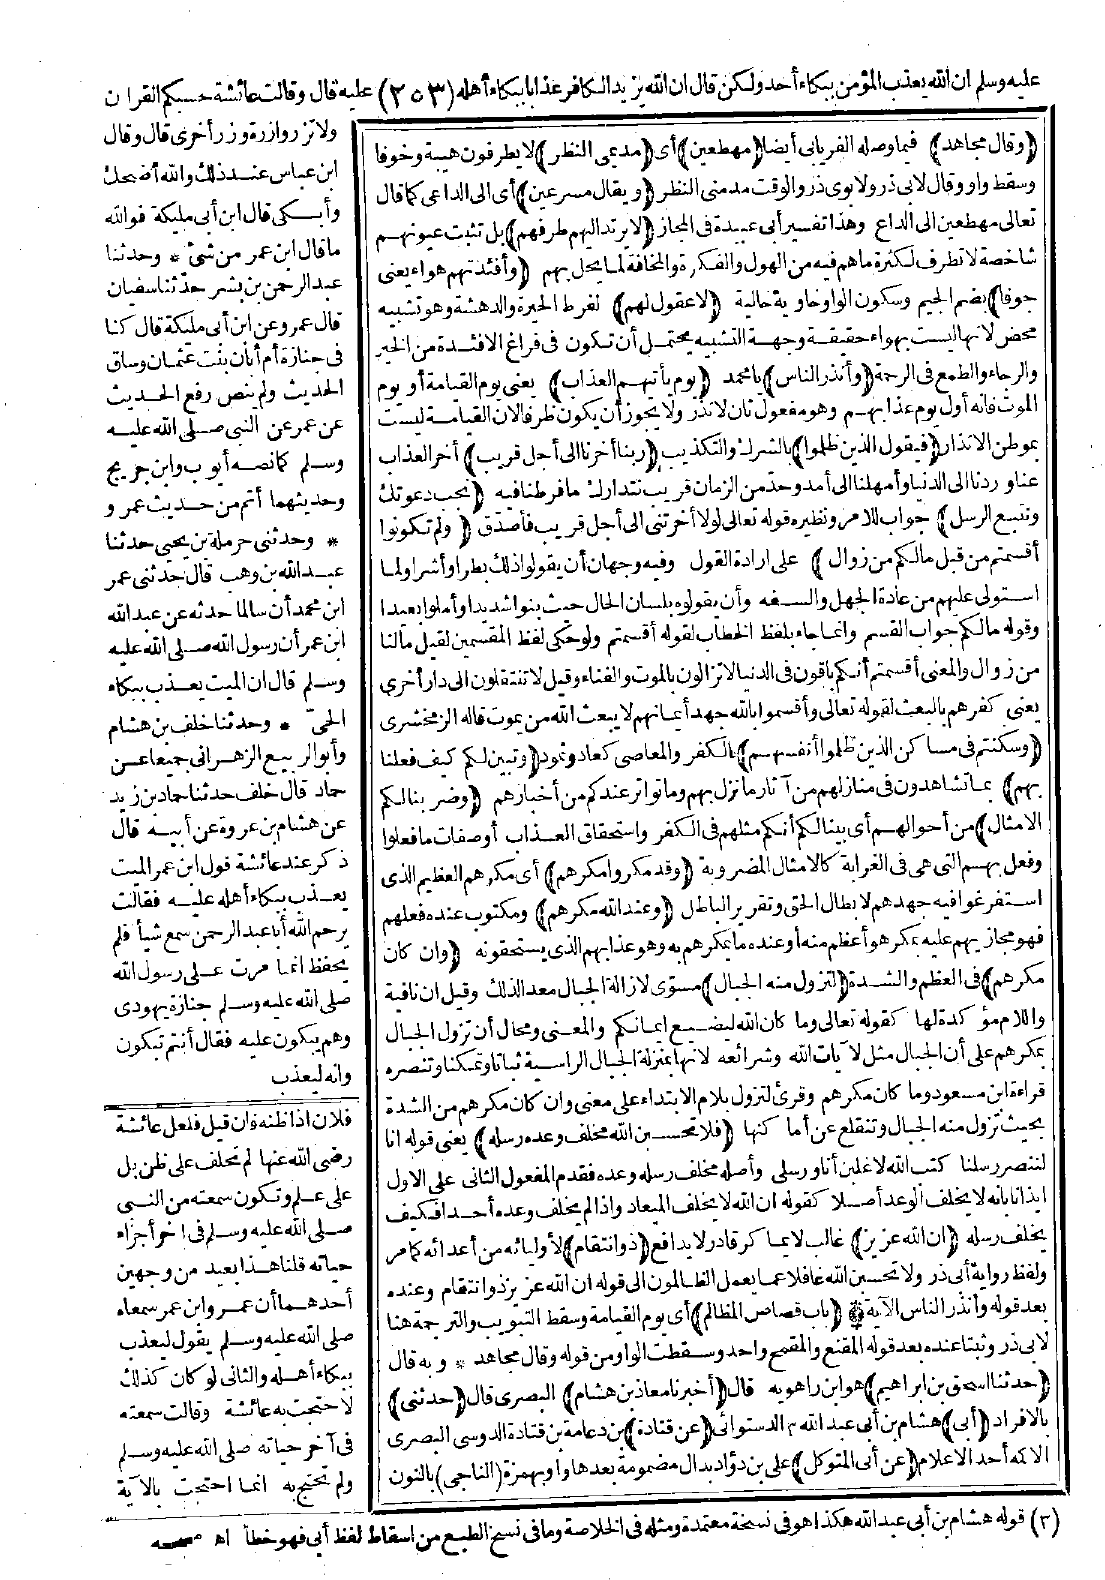 عليه وسلم ان الله يعذب المؤمن ببكاء أحد ولكن قال ان الله يزيد الكافر عذابا ببكاء أهله (٢٥٣) عليه قال وقالت عائشة حسبكم القرآن
ولا تزر وازرة وزر أخرى قال وقال
ابن عباس عند ذلك والله أضحك
وأبكى قال ابن أبى مليكة فوالله
ما قال ابن عمر من شئ * وحدثنا
عبد الرحمن بن بشر حدثنا سفيان
قال عمرو عن ابن أبى مليكة قال كنا
فى جنازة أم أبان بنت عثمان وساق
الحديث ولم ينص رفع الحديث
عن عمر عن النبى صلى الله عليه
وسلم كما نصه أيوب وابن جريج
وحديثهما أتم من حديث عمرو
* وحدثنى حرملة بن يحيى حدثنا
عبد الله بن وهب قال حدثنى عمر
ابن محمد أن سالما حدثه عن عبد الله
ابن عمر أن رسول الله صلى الله عليه
وسلم قال ان الميت يعذب ببكاء
الحى * وحدثنا خلف بن هشام
وأبو الربيع الزهرانى جميعا عن
حماد قال خلف حدثنا حماد بن زيد
عن هشام بن عروة عن أبيه قال
ذكر عند عائشة قول ابن عمر الميت
يعذب ببكاء أهله عليه فقالت
يرحم الله أبا عبد الرحمن سمع شيأ فلم
يحفظ انما مرت على رسول الله
صلى الله عليه وسلم جنازة يهودى
وهم يبكون عليه فقال أنتم تبكون
وانه ليعذب
فلان اذا ظنه فان قيل فلعل عائشة
رضى الله عنها لم تحلف على ظن بل
على علم وتكون سمعته من النبى
صلى الله عليه وسلم فى اخر أجزاء
حياته قلنا هذا بعيد من وجهين
أحدهما أن عمر وابن عمر سمعاه
صلى الله عليه وسلم يقول ليعذب
ببكاء أهله والثانى لو كان كذلك
لاحتجت به عائشة وقالت سمعته
فى آخر حياته صلى الله عليه وسلم
ولم تحتج به انما احتجت بالآية
(وقال مجاهد) فيما وصله الفريابى أيضا (مهطعين) أى (مديمى النظر) لا يطرفون هيبة وخوفا
وسقط واو وقال لابى ذر ولا بوى ذر والوقت مدمنى النظر (ويقال مسرعين) أى الى الداعى كما قال
تعالى مهطعين الى الداع وهذا تفسير أبى عبيدة فى المجاز (لا يرتد اليهم طرفهم) بل تثبت عيونهم
شاخصة لا تطرف لكثرة ما هم فيه من الهول والفكرة والمخافة لما يحل بهم (وأفئدتهم هواء يعنى
جوفا) بضم الجيم وسكون الواو خاوية خالية (لا عقول لهم) لفرط الحيرة والدهشة وهو تشبيه
محض لانها ليست بهواء حقيقة وجهة التشبيه يحتمل أن تكون فى فراغ الافئدة من الخير
والرجاء والطمع فى الرحمة (وأنذر الناس) يا محمد (يوم يأتيهم العذاب) يعنى يوم القيامة أو يوم
الموت فانه أول يوم عذابهم وهو مفعول ثان لانذر ولا يجوز أن يكون ظرفا لان القيامة ليست
بموطن الانذار (فيقول الذين ظلموا) بالشرك والتكذيب (ربنا أخرنا الى أجل قريب) أخر العذاب
عنا وردنا الى الدنيا وأمهلنا الى أمد وحد من الزمان قريب نتدارك ما فرطنا فيه (نجب دعوتك
ونتبع الرسل) جواب للامر ونظيره قوله تعالى لولا أخرتنى الى أجل قريب فأصدق (ولم تكونوا
أقسمتم من قبل مالكم من زوال) على ارادة القول وفيه وجهان أن يقولوا ذلك بطرا وأشرا ولما
استولى عليهم من عادة الجهل والسفه وأن يقولوه بلسان الحال حيث بنوا شديدا وأملوا بعيدا
وقوله مالكم جواب القسم وانما جاء بلفظ الخطاب لقوله أقسمتم ولو حكى لفظ المقسمين لقيل مالنا
من زوال والمعنى أقسمتم أنكم باقون فى الدنيا لا تزالون بالموت والفناء وقيل لا تنتقلون الى دار أخرى
يعنى كفرهم بالبعث لقوله تعالى وأقسموا بالله جهد أيمانهم لا يبعث الله من يموت قاله الزمخشرى
(وسكنتم فى مساكن الذين ظلموا أنفسهم) بالكفر والمعاصى كعاد وثمود (وتبين لكم كيف فعلنا
بهم) بما تشاهدون فى منازلهم من آثار ما نزل بهم وما تواتر عندكم من أخبارهم (وضربنا لكم
الامثال) من أحوالهم أى بينا لكم أنكم مثلهم فى الكفر واستحقاق العذاب أو صفات ما فعلوا
وفعل بهم التى هى فى الغرابة كالامثال المضروبة (وقد مكروا مكرهم) أى مكرهم العظيم الذى
استفرغوا فيه جهدهم لابطال الحق وتقرير الباطل (وعند الله مكرهم) ومكتوب عنده فعلهم
فهو مجازيهم عليه بمكر هو أعظم منه أو عنده ما يمكرهم به وهو عذابهم الذى يستحقونه (وان كان
مكرهم) فى العظم والشدة (لتزول منه الجبال) مسوّى لازالة الجبال معد الذلك وقيل ان نافية
واللام مؤكدة لها كقوله تعالى وما كان الله ليضيع ايمانكم والمعنى ومحال أن تزول الجبال
بمكرهم على أن الجبال مثل لآيات الله وشرائعه لانها بمنزلة الجبال الراسية ثباتا وتمكنا وتنصره
قراءة ابن مسعود وما كان مكرهم وقرئ لتزول بلام الابتداء على معنى وان كان مكرهم من الشدة
بحيث تزول منه الجبال وتنقلع عن أماكنها (فلا تحسبن الله مخلف وعده رسله) يعنى قوله انا
لننصر رسلنا كتب الله لاغلبن أنا ورسلى وأصله مخلف رسله وعده فقدم المفعول الثانى على الاول
ايذانا بانه لا يخلف الوعد أصلا كقوله ان الله لا يخلف الميعاد واذا لم يخلف وعده أحدا فكيف
يخلف رسله (ان الله عزيز) غالب لا يماكر قادر لا يدافع (ذو انتقام) لأوليائه من أعدائه كما مر
ولفظ رواية أبى ذر ولا تحسبن الله غافلا عما يعمل الظالمون الى قوله ان الله عزيز ذو انتقام وعنده
بعد قوله وأنذر الناس الآية * (باب قصاص المظالم) أى يوم القيامة وسقط التبويب والترجمة هنا
لابى ذر وثبتا عنده بعد قوله المقنع والمقمح واحد وسقطت الواو من قوله وقال مجاهد * وبه قال
(حدثنا اسحق بن ابراهيم) هو ابن راهويه قال (أخبرنا معاذ بن هشام) البصرى قال (حدثنى)
بالافراد (أبى) هشام بن أبى عبد الله ٣ الدستوائى (عن قتادة) بن دعامة بن قتادة الدوسى البصرى
الاكمه أحد الاعلام (عن أبى المتوكل) على بن دؤاد بدال مضمومة بعدها واو بهمزة (الناجى) بالنون
(٣) قوله هشام بن أبى عبد الله هكذا هو فى نسخة معتمدة ومثله فى الخلاصة وما فى نسخ الطبع من اسقاط لفظ أبى فهو خطأ اه مصححه